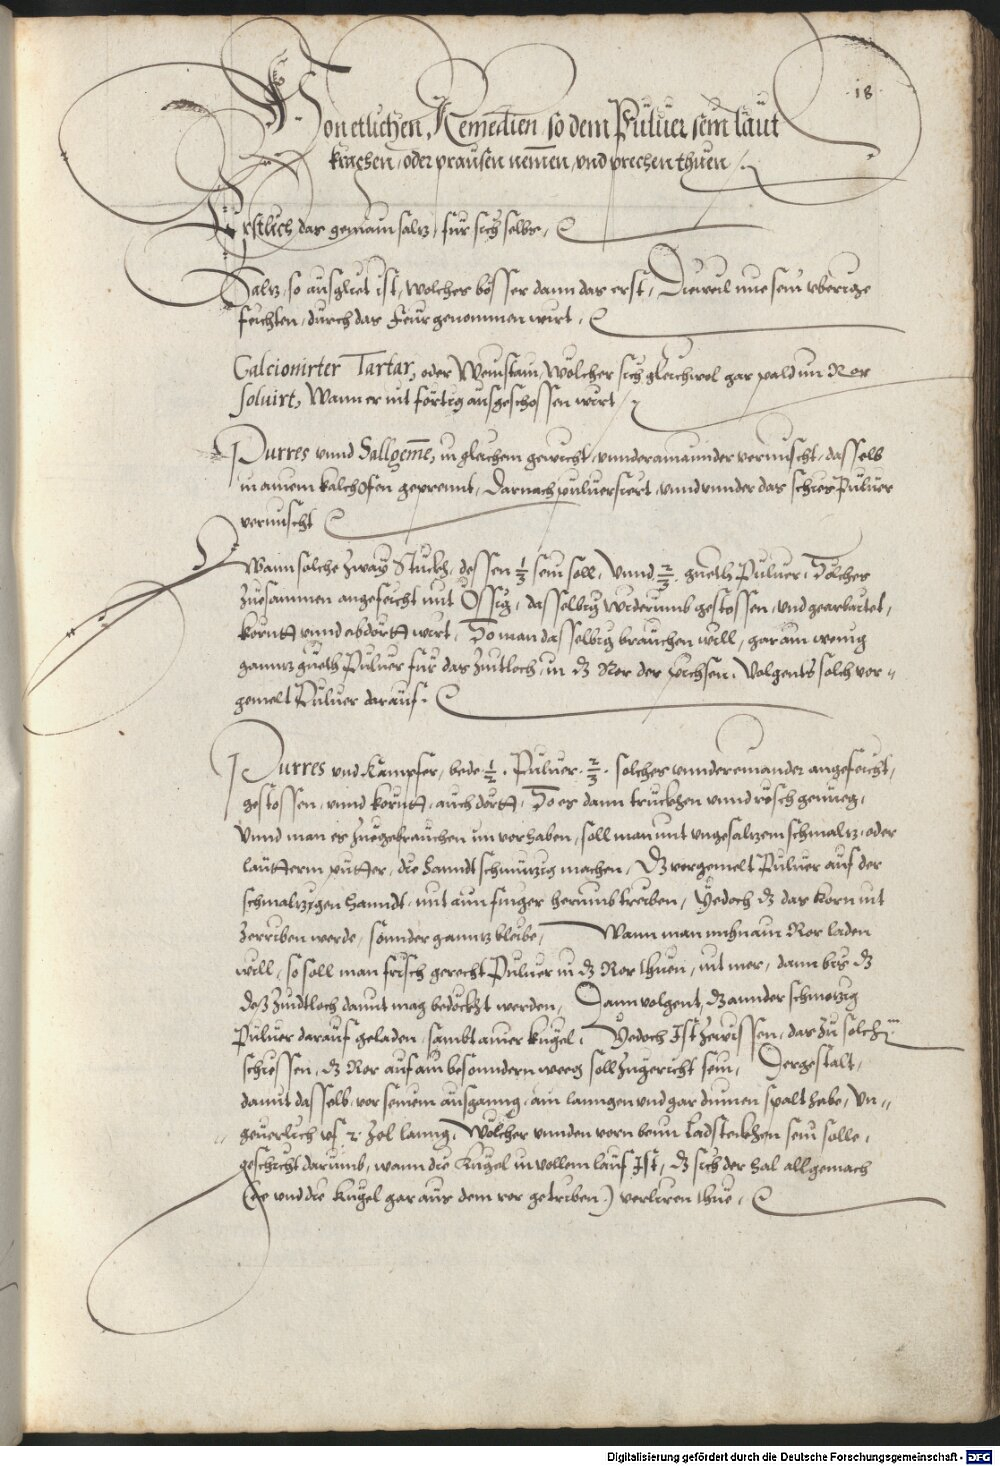 18
Von etlichen Remedien, so dem Puluer sein laut
krachen, oder prausen nemen, und prechen thuen
Erstlich das gemain saltz, für sich selbs,
Saltz, so ausgliet ist, welches bösser dann das erst, Dieweil nue sein vberige
feichten, durch das Feur genommen wirt,
Calcionirter Tartar, oder Weinstain, Wölcher sich gleichwol gar pald im Ror
soluirt, Wann er nit förtig ausgeschossen wirt
Purres vnnd Sallgeme, in gleichem gewicht, vnnderainainnder vermischt, dasselb
in ainem kalchofen geprennt, Darnach puluersiert, vnnd vnnder das schies Puluer
vermischt
Wann solche zway Stuckh, dessen 1/3 sein soll, Vnnd 2/3 gueth Puluer, Sölches
zuesammen angefeicht mit Össig, dasselbig widerumb gestossen, vnd gearbaitet,
körntt vnnd abdörtt wirt, So man dasselbig brauchen will, gar ain wenig
ganntz gueth Puluer für das Zintloch, in dz Ror der pichsen, Volgents solch vor„
gemelt Puluer darauf.
Purres vnd Kampfer, bede 1/2. Puluer 2/3. solches vnndereinander angefeicht,
gestossen, vnnd körntt, auch dörtt, So es dann truckhen vnnd rösch genueg,
Vnnd man es zuegebrauchen im vorhaben, soll man mit vngesaltzem schmaltz, oder
lautterm putter, die Hanndt schmutzig machen, Dz vorgemelt Puluer auf der
schmaltzigen Hanndt, mit aim finger herumb treiben, Yedoch dz das Korn nit
zerriben werde, sonnder ganntz bleibe, Wann man nuhn ain Ror laden
will, so soll man frisch gerecht Puluer in dz Ror thuen, nit mer, dann bis dz
des Zindtloch damit mag bedöckht werden, Dann volgent, dz annder schmotzig
Puluer darauf geladen, sambt ainer kugel, Yedoch Ist zewissen, das zu solchem
schiessen, dz Ror auf ain besonndern weeg soll zugericht sein, Dergestalt,
damit dasselb, vor seinem ausganng, ain lanngen vnd gar dinnen spalt habe, Vn„
„ geuerlich vf 2. zol lanng, Wölcher vnnden vorn beim Ladsteckhen sein solle,
geschicht darumb, wann die Kugel in vollem lauf Ist, dz sich der hal allgemach
(ee vnd die Kugel gar aus dem ror getriben.) verliren thue,
Digitalisierung gefördert durch die Deutsche Forschungsgemeinschaft - DFG